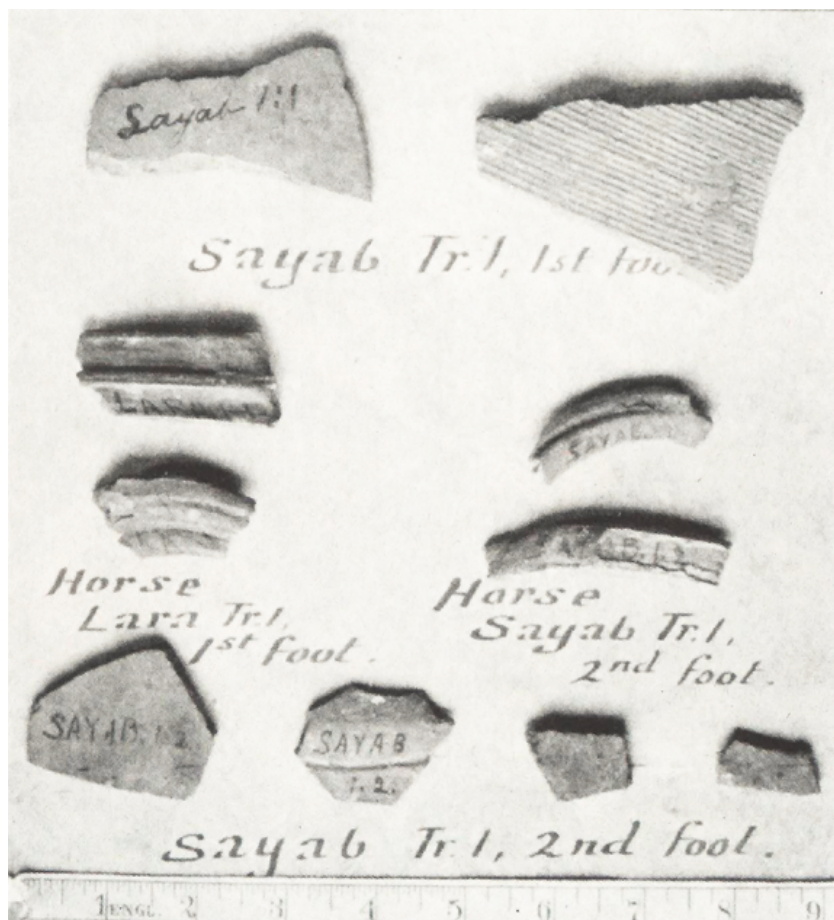 Sayab 1:1
Sayab Tr.1, 1st foo
LARA 1.1
SAYAB
Horse
Lara Tr.1,
1st foot.
Horse
Sayab Tr.1,
2nd foot.
SAYAB.1.2
SAYAB
1.2.
Sayab Tr.1, 2nd foot.
1 ENGL. 2 3 4 5 6 7 8 9